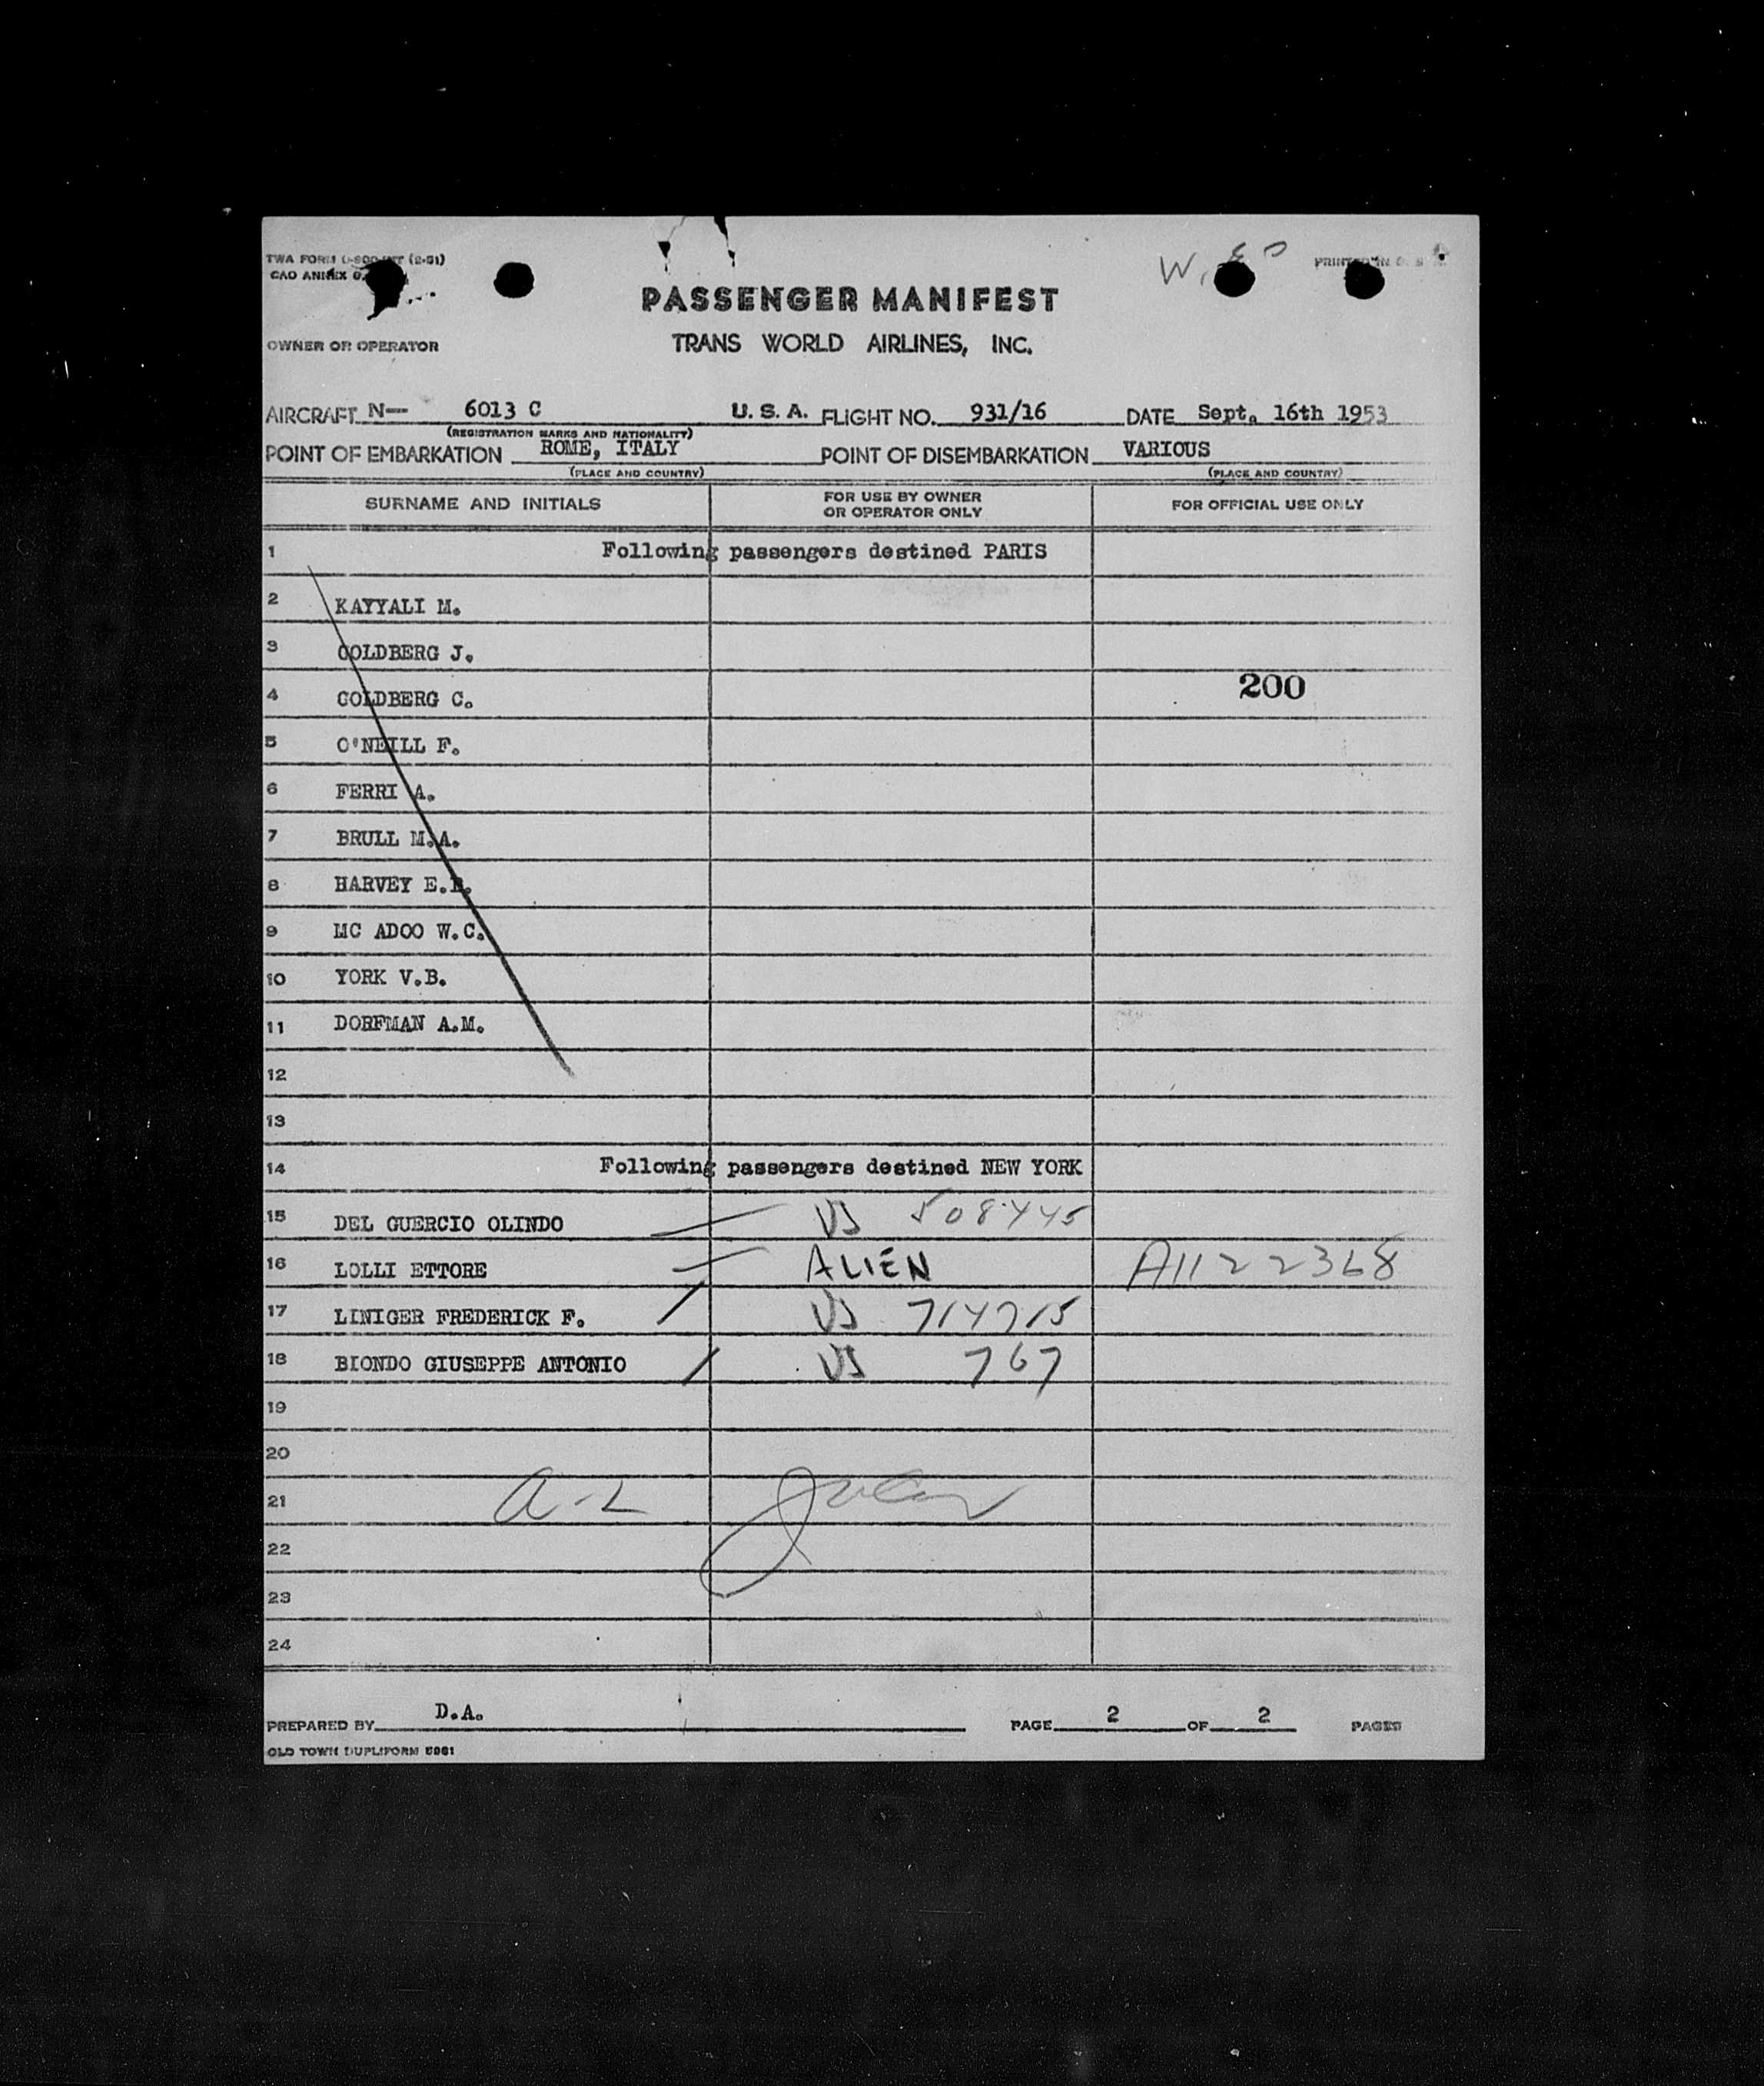 TWA FORM (2-51)
CAO ANNEX
PASSENGER MANIFEST
OWNER OR OPERATOR TRANS WORLD AIRLINES, INC.
AIRCRAFT N— 6013 C U. S. A. FLIGHT NO. 931/16 DATE Sept. 16th 1953
(REGISTRATION MARKS AND NATIONALITY)
POINT OF EMBARKATION ROME, ITALY POINT OF DISEMBARKATION VARIOUS
(PLACE AND COUNTRY) (PLACE AND COUNTRY)
SURNAME AND INITIALS FOR USE BY OWNER OR OPERATOR ONLY FOR OFFICIAL USE ONLY
1 Following passengers destined PARIS
2 KAYYALI M.
3 GOLDBERG J.
4 GOLDBERG C. 200
5 O'NEILL F.
6 FERRI A.
7 BRULL M.A.
8 HARVEY E.
9 MC ADOO W.C.
10 YORK V.B.
11 DORFMAN A.M.
12
13
14 Following passengers destined NEW YORK
15 DEL GUERCIO OLINDO US 508445
16 LOLLI ETTORE ALIEN A1122368
17 LINIGER FREDERICK F. US 714715
18 BIONDO GIUSEPPE ANTONIO US 767
19
20
21
22
23
24
PREPARED BY D.A. PAGE 2 OF 2 PAGES
OLD TOWN DUPLIFORM